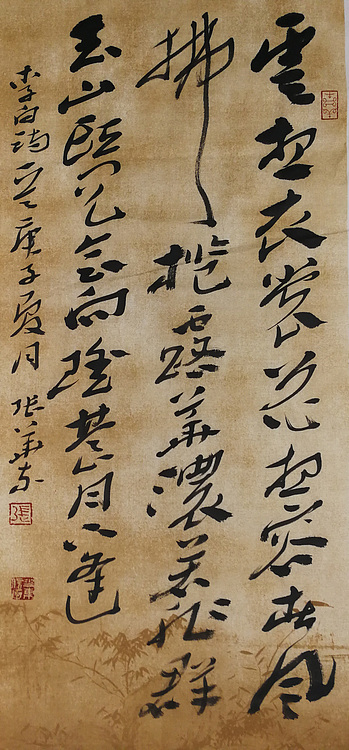 雲想衣裳花想容春風
拂檻露華濃若非群
玉山頭見會向瑤臺月下逢
李白詩一首庚子夏月張華東
張